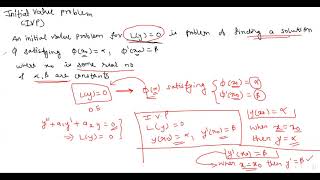 Initial Value problem
(IVP)
An initial value problem for L(y)=0 is problem of finding a solution
φ satisfying φ(x₀)=α, φ'(x₀)=β
where x₀ is some real no
& α, β are constants
L(y)=0 → φ(x) satisfying { φ(x₀)=α
φ'(x₀)=β
D.E
y''+a₁y'+a₂y=0
⇒ L(y)=0
IVP
L(y)=0
y(x₀)=α, y'(x₀)=β
y(x₀)=α
when x=x₀
then y=α
y'(x₀)=β
when x=x₀ then y'=β